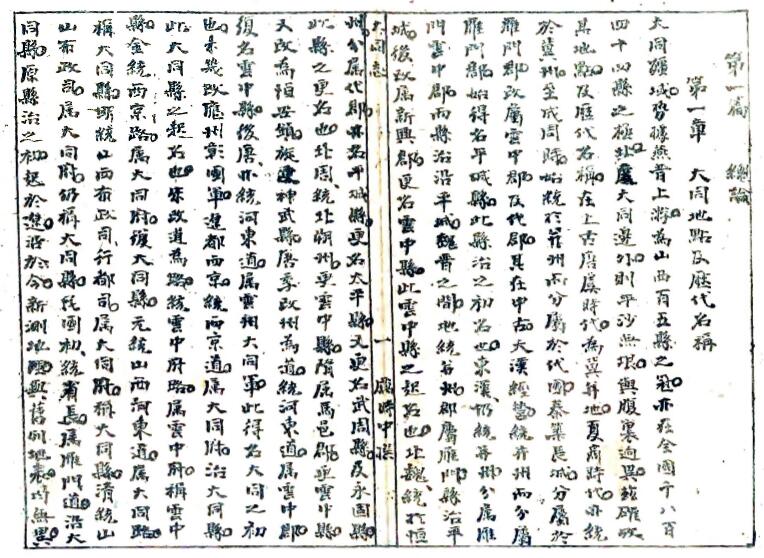 第一篇 總論
第一章 大同地點及歷代名稱
大同疆域勢據燕晉上游為山西百五縣之冠亦在全國千八百
四十四縣之極北處大同邊外則平沙無垠與腹裏迥異茲確攷
其地點及歷代名稱在上古唐虞時代為冀并地夏商時代亦統
於冀州至成周時始統於并州而分屬於代國秦築長城分屬於
雁門郡改屬雲中郡及代郡其在中古大漢經營統并州而分屬
雁門郡始得名平城縣此縣治之初名也東漢仍統并州分属雁
門雲中郡而縣治沿平城魏晉之間地統并州郡屬雁門縣治平
城後改屬新興郡更名雲中縣此雲中縣之起名也北魏統於恒
大同志 一 應時中探
州分屬代郡亦名平城縣更名太平縣又更名武周縣及永固縣
此縣之更名也北周統北朔州更雲中縣隋屬馬邑郡更雲中縣
又改為恒安鎮旋更神武縣唐季改州為道統河東道屬雲中郡
復名雲中縣後唐亦統河東道屬雲州大同軍此得名大同之初
也未幾改應州彰國軍遼都西京統西京道屬大同府治大同縣
此大同縣之起名也宋改道為路統雲中府路屬雲中府稱雲中
縣金統西京路屬大同府復大同縣元統山西河東道屬大同路
稱大同縣明統山西布政司行都司屬大同府稱大同縣清統山
山布政司属大同府仍稱大同縣民國初統省長属雁門道沿大
同縣原縣治之初起於遼沿於今新測地圖與舊例地表均無異